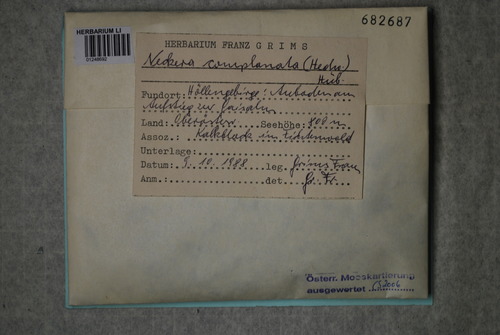 682687
HERBARIUM LI
HERBARIUM FRANZ GRIMS
Neckera complanata (Hedw.)
Hüb.
Fundort: Höllengebirge:
Aufstieg zur
Land: Oberösterr. Seehöhe: 808 m
Assoz.: Kalkblock im Fichtenwald
Unterlage:
Datum: 9.10.1988 leg. Grims Franz
Anm. det. Gr. Fr.
Österr. Mooskartierung
ausgewertet